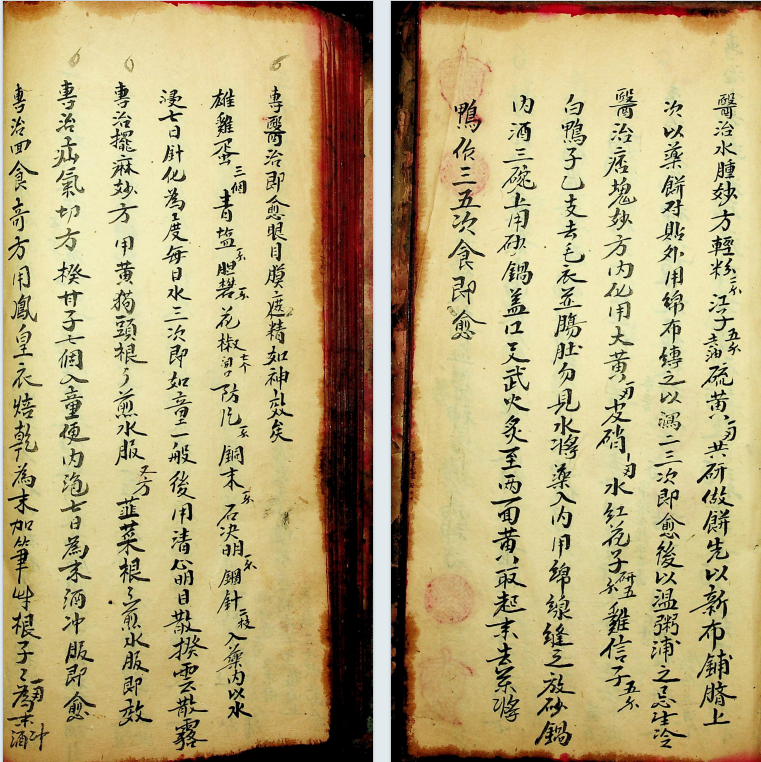 醫治水腫妙方輕粉二錢江子五錢去油硫黄一両共研做餅先以新布鋪臍上
次以藥餅對貼外用綿布縛之以瀉二三次即愈後以温粥浦之忌生冷
醫治痞塊妙方内化用大黄一両皮硝一両水紅花子研五錢雞信子五錢
白鴨子乙支去毛衣並腸肚勿見水將藥入内用綿線縫之放砂鍋
内酒三碗上用砂鍋盖口文武火炙至两面黄取起来去薬將
鴨作三五次食即愈
專醫治即愈眼目膜遮精如神效矣
雄雞蛋三個青塩錢胆礬錢花椒七个防風錢銅末一錢石决明一錢鋼針一枝入藥内以水
浸七日針化為度每日水三次即如童一般後用清心明目散撥雲散霧
專治擺麻妙方用黄狗頭根煎水服又方韮菜根煎水服即效
專治疝氣切方揆甘子七個入童便内泡七日為末酒冲服即愈
專治回食奇方用鳳皇衣焙乾為末加筆牛根子一両為末冲酒